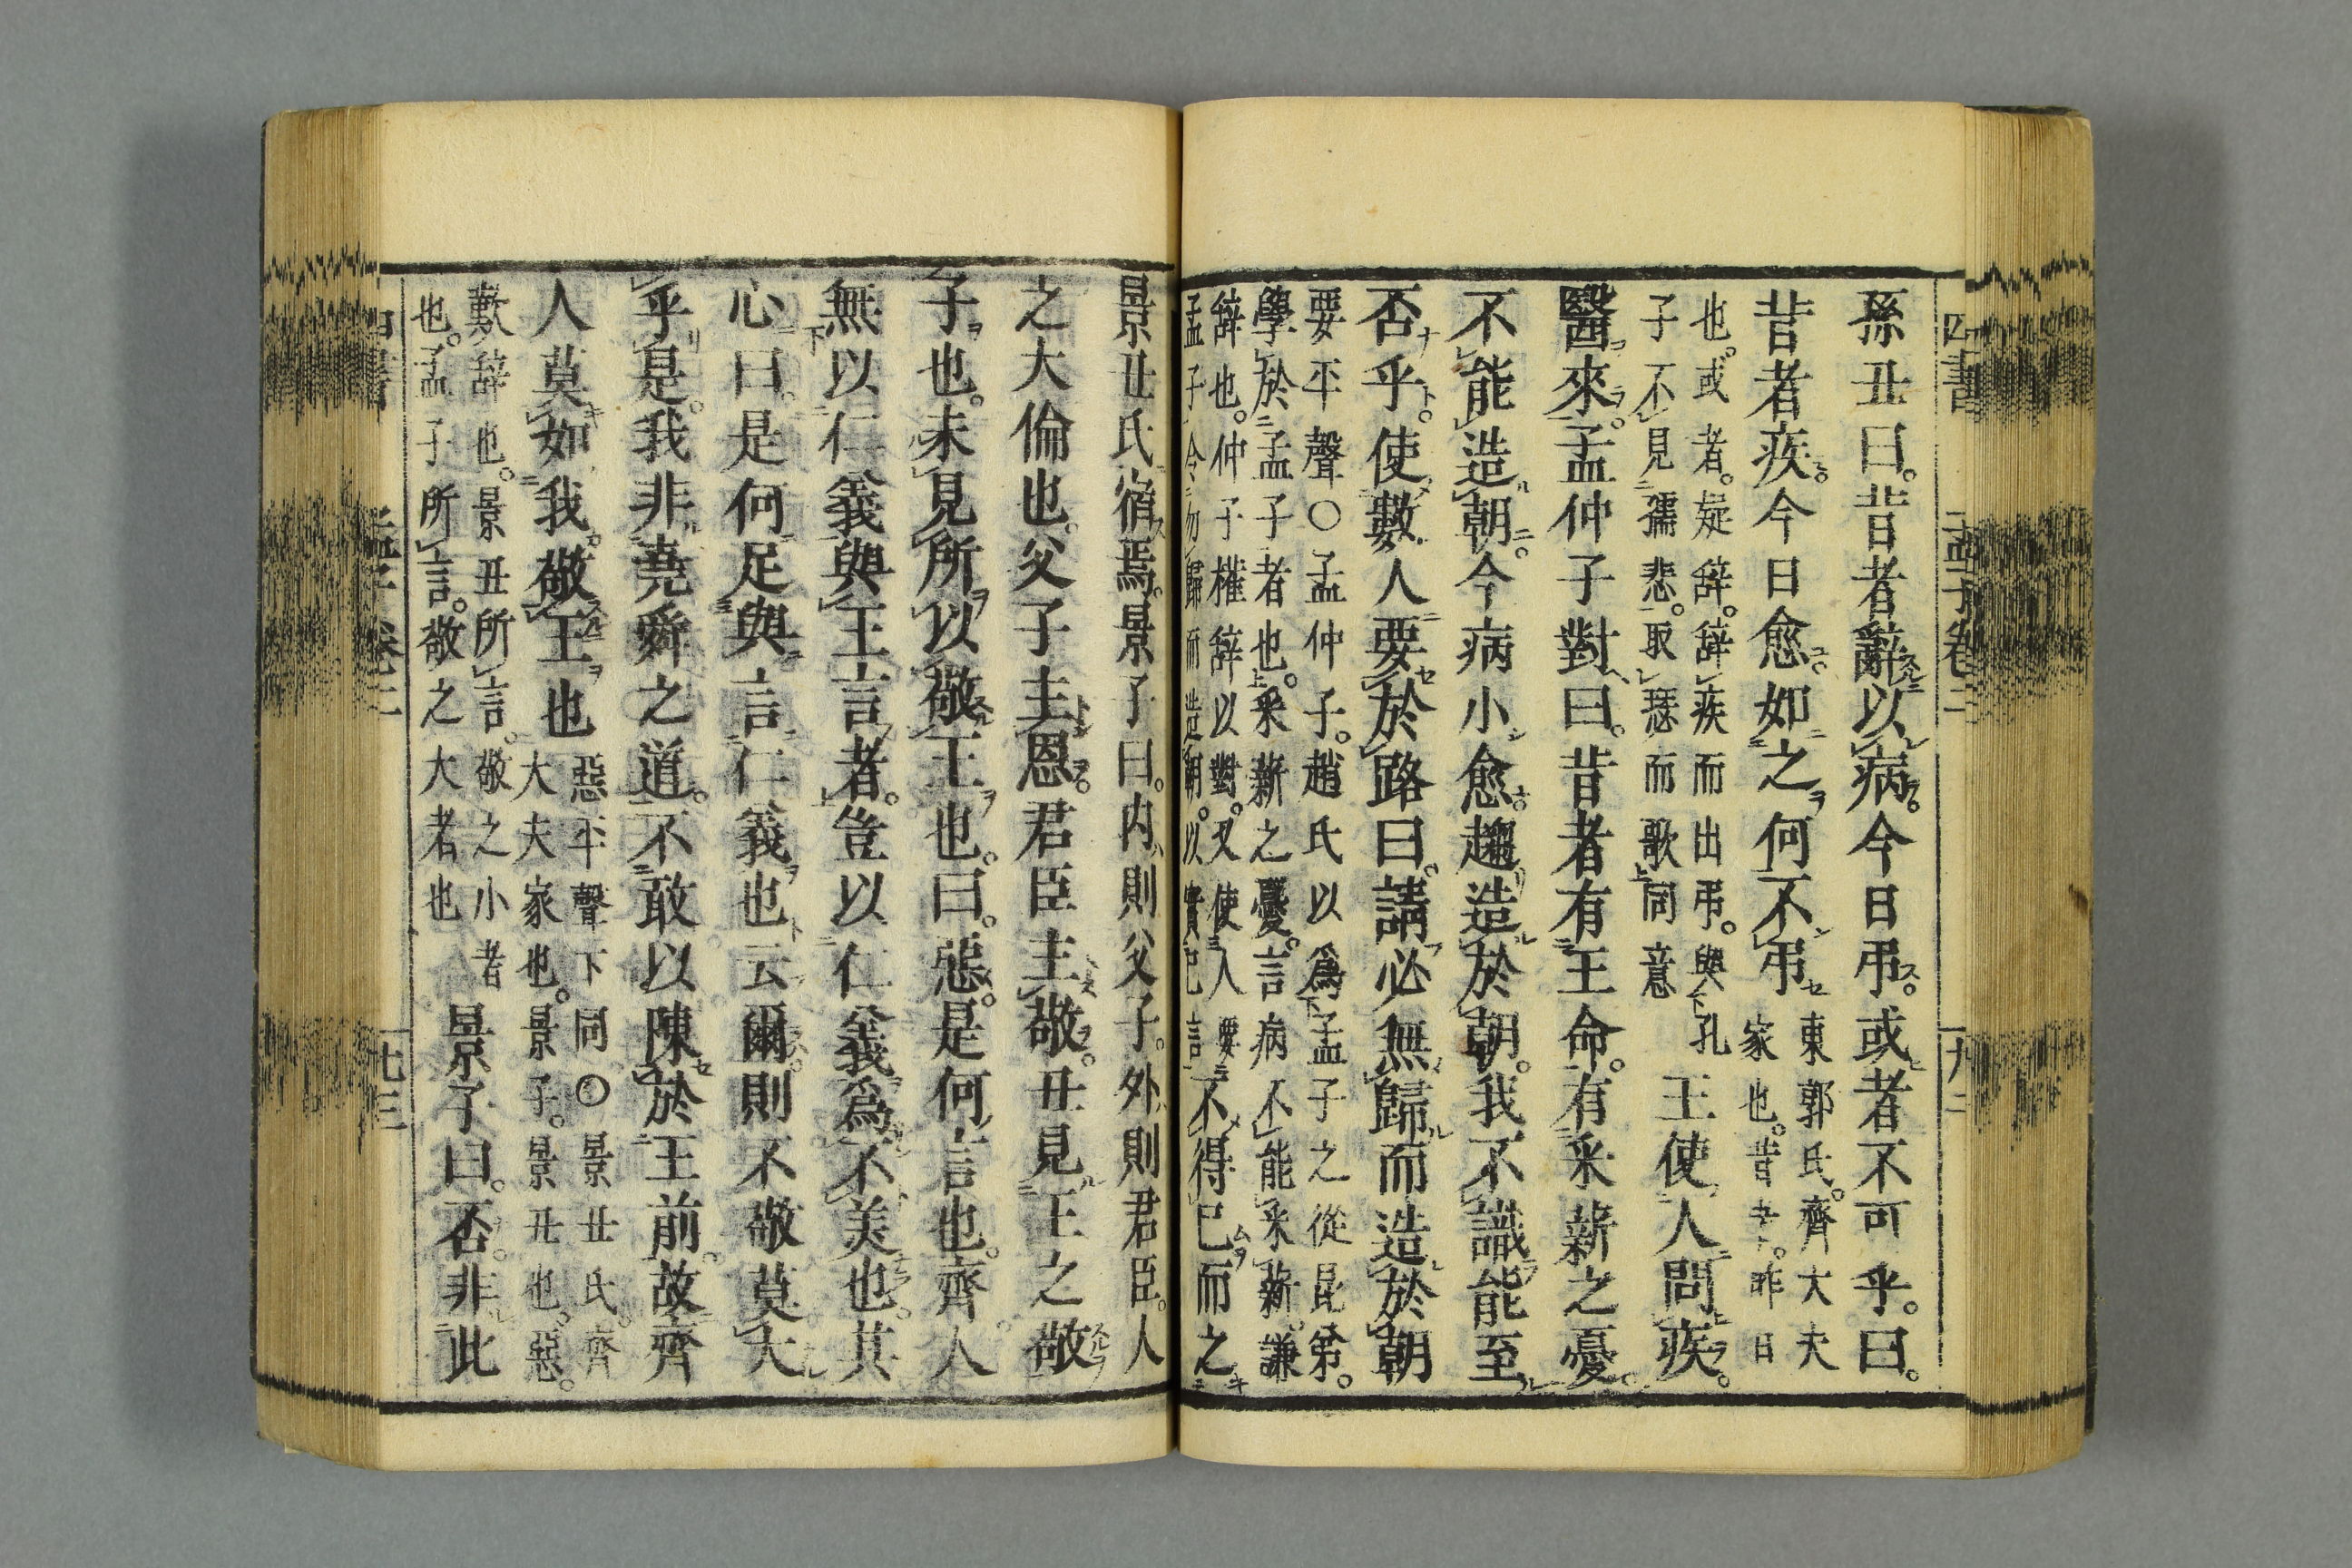 孫丑曰。昔者辭以病。今日弔。或者不可乎。曰。
昔者疾。今日愈。如之何不弔
東郭氏。齊大夫
家也。昔者。昨日
也。或者。疑辞。辞疾而出弔。與孔
子不見孺悲。取瑟而歌同意
王使人問疾。
醫來。孟仲子對曰。昔者有王命。有采薪之憂。
不能造朝。今病小愈。趨造於朝。我不識能至
否乎。使數人要於路曰。請必無歸而造於朝
要平聲○孟仲子。趙氏以爲孟子之從昆弟。
學於孟子者也。采薪之憂。言病不能采薪。謙
辞也。仲子權辞以對。又使人要
孟子令勿歸而造朝。以實己言
不得已而之
景丑氏宿焉。景子曰。内則父子。外則君臣。人
之大倫也。父子主恩。君臣主敬。丑見王之敬
子也。未見所以敬王也。曰。惡。是何言也。齊人
無以仁義與王言者。豈以仁義爲不美也。其
心曰。是何足與言仁義也云爾。則不敬莫大
乎是。我非堯舜之道。不敢以陳於王前。故齊
人莫如我敬王也
惡平聲下同○景丑氏。齊
大夫家也。景子。景丑也。惡。
歎辞也。景丑所言。敬之小者
也。孟子所言。敬之大者也
景子曰。否。非此